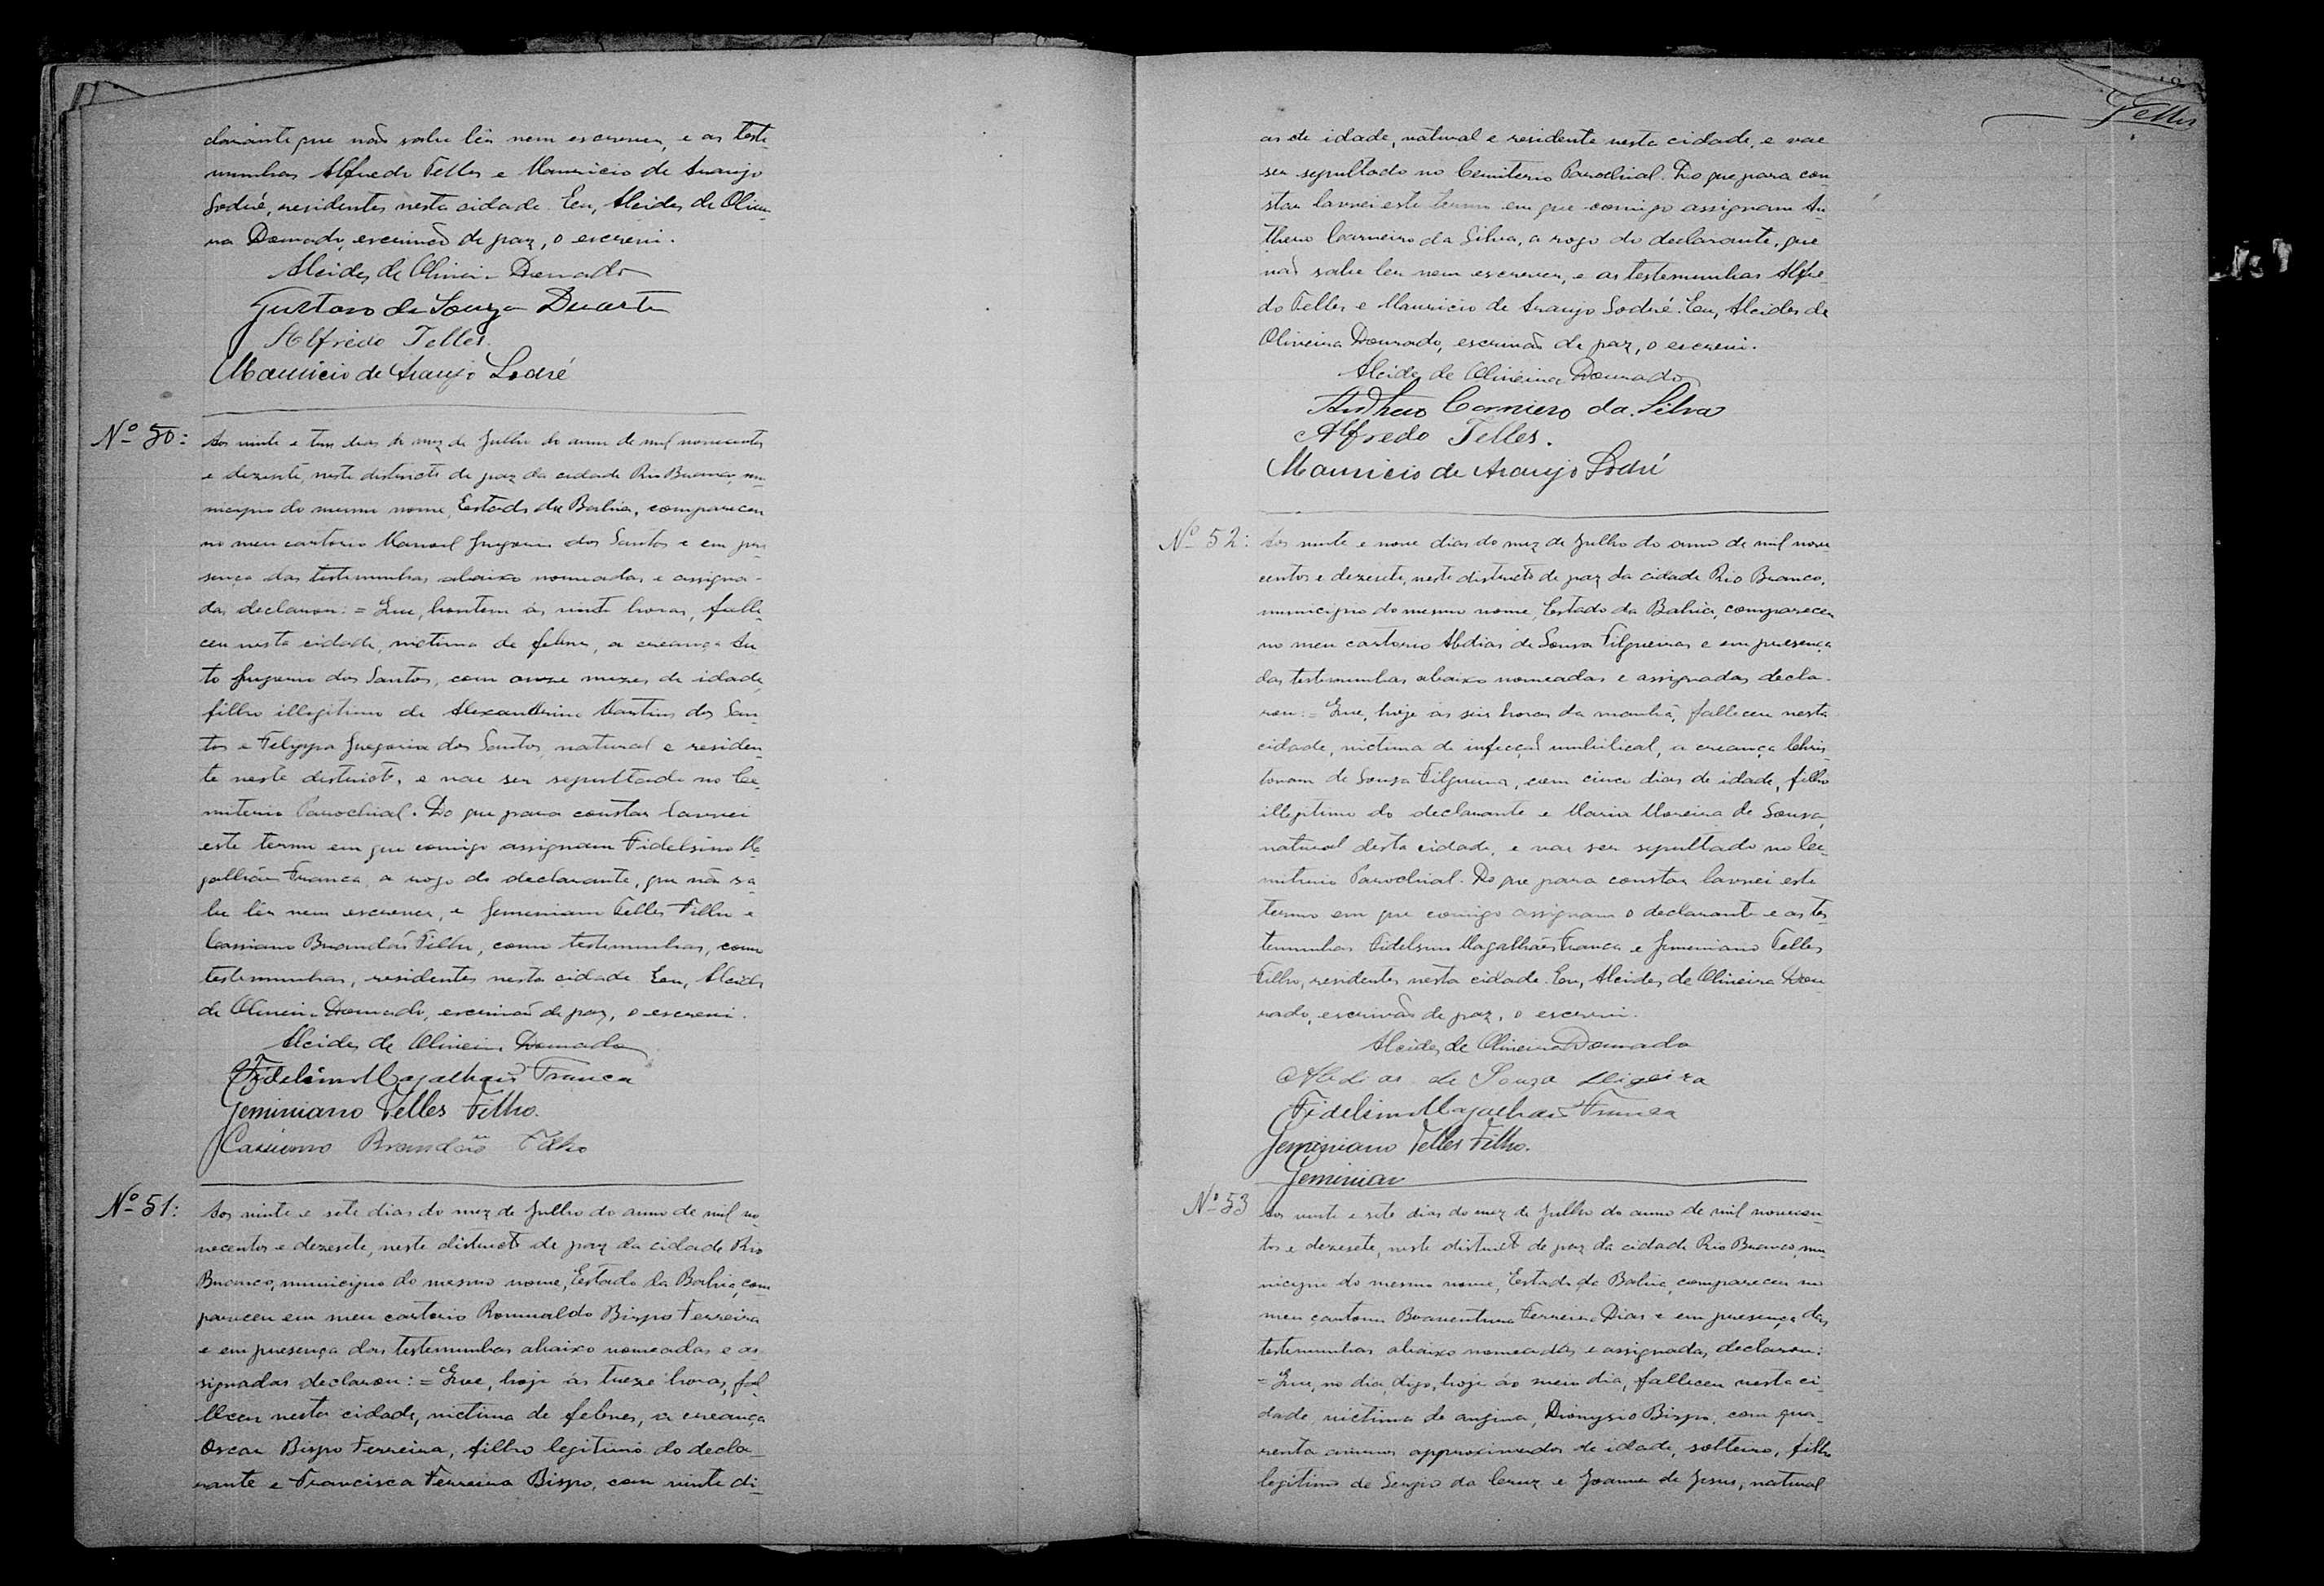 clarante que não sabe lêr nem escrever, e as teste
munhas Alfredo Telles e Mauricio de Araujo
Sodré, residentes nesta cidade. Eu, Alcides de Olivei
ra Dourado, escrivão de paz, o escrevi.
Alcides de Oliveira Dourado
Gustavo de Souza Duarte
Alfredo Telles.
Mauricio de Araujo Sodré
Nº 50:
Aos vinte e tres dias do mez de Julho do anno de mil novecentos
e dezesete, neste districto de paz da cidade Rio Branco, mu-
nicipio do mesmo nome, Estado da Bahia, compareceu
no meu cartorio Manoel Gregorio dos Santos e em pre
sença das testemunhas abaixo nomeadas e assigna-
das declarou: = Que, hontem ás vinte horas, falle
ceu nesta cidade, victima de febre, a creança
to Gregorio dos Santos, com onze mezes de idade,
filho illegitimo de Alexandrino Martins dos San-
tos e Felippa Gregoria dos Santos, natural e residen-
te neste districto, e vae ser sepultado no Ce-
miterio Parochial. Do que para constar lavrei
este termo em que comigo assignam Fidelsino Ma
galhães Franca, a rogo do declarante, que não sa
be lêr nem escrever, e Geminiano Telles Filho e
Cassiano Brandão Filho, como testemunhas, como
testemunhas, residentes nesta cidade. Eu, Alcides
de Oliveira Dourado, escrivão de paz, o escrevi.
Alcides de Oliveira Dourado
Fidelsino Magalhães Franca
Geminiano Telles Filho.
Cassiano Brandão Filho
Nº 51:
Aos vinte e sete dias do mez de Julho do anno de mil no-
vecentos e dezesete, neste districto de paz da cidade Rio
Branco, municipio do mesmo nome, Estado da Bahia, com
pareceu em meu cartorio Romualdo Bispo Ferreira
e em presença das testemunhas abaixo nomeadas e as-
signadas declarou: = Que, hoje ás treze horas, fal
lleceu nesta cidade, victima de febres, a creança
Oscar Bispo Ferreira, filho legitimo do decla-
rante e Francisca Ferreira Bispo, com vinte di-
Telles
as de idade, natural e residente nesta cidade, e vae
ser sepultado no Cemiterio Parochial. Do que para con-
star lavrei este termo em que comigo assignam An
thero Carneiro da Silva, a rogo do declarante, que
não sabe ler nem escrever, e as testemunhas Alfre-
do Telles e Mauricio de Araujo Sodré. Eu, Alcides de
Oliveira Dourado, escrivão de paz, o escrevi.
Alcides de Oliveira Dourado
Anthero Carneiro da Silva
Alfredo Telles.
Mauricio de Araujo Sodré
Nº 52:
Aos vinte e nove dias do mez de Julho do anno de mil nove
centos e dezesete, neste districto de paz da cidade Rio Branco,
municipio do mesmo nome, Estado da Bahia, compareceu
no meu cartorio Abdias de Sousa Filgueiras e em presença
das testemunhas abaixo nomeadas e assignadas decla-
rou: = Que, hoje as seis horas da manhã, falleceu nesta
cidade, victima de infecção umbilical, a creança Chris
tovam de Souza Filgueira, com cinco dias de idade, filho
illegitimo do declarante e Maria Moreira de Sousa,
natural desta cidade, e vae ser sepultado no Ce-
miterio Parochial. Do que para constar lavrei este
termo em que comigo assignam o declarante e as tes-
temunhas Fidelsino Magalhães Franca e Geminiano Telles
Filho, residentes nesta cidade. Eu, Alcides de Oliveira Dou
rado, escrivão de paz, o escrevi.
Alcides de Oliveira Dourado
Abdias de Souza
Fidelsino Magalhães Franca
Geminiano Telles Filho.
Geminian
Nº 53
Aos vinte e sete dias do mez de Julho do anno de mil novecen-
tos e dezesete, neste districto de paz da cidade Rio Branco, mu-
nicipio do mesmo nome, Estado da Bahia, compareceu no
meu cartorio Boaventura Ferreira Dias e em presença das
testemunhas abaixo nomeadas e assignadas, declarou:
= Que, no dia, digo, hoje ao meio dia, falleceu nesta ci-
dade, victima de angina, Dionysio Bispo, com qua-
renta annos approximados de idade, solteiro, filho
legitimo de Sergio da Cruz e Joanna de Jesus, natural